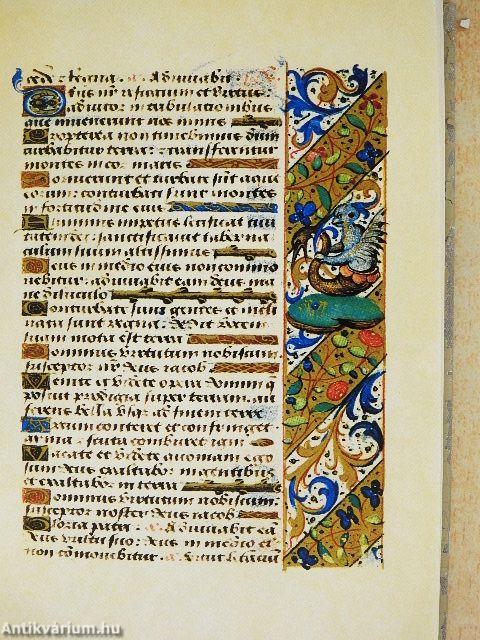 cede et regna. a. Adiuuabit
Deus nr̄ refugium et virtus
adiutor in tribulationibus
que inuenerunt nos nimis
Propterea non timebimus dum
turbabitur terra: et transferentur
montes in cor maris
Sonuerunt et turbate sūt aque
eorum: conturbati sunt montes
in fortitudine eius
fluminis impetus letificat ciui
tatem dei: sanctificauit taber na
culum suum altissimus
Deus in medio eius non commo
uebitur: adiuuabit eam deus ma
ne diluculo
Conturbate sunt gentes et incli
nata sunt regna: dedit vocem
suam mota est terra
Dominus virtutum nobiscum:
susceptor nr̄ deus iacob
Venite et videte opera domini q
posuit prodigia super terram: au
ferens bella vsq; ad finem terre
Arcum conteret et confringet
arma: et scuta comburet igni
Vacate et videte quoniam ego
sum deus: exaltabor in gentibus
et exaltabor in terra
Dominus virtutum nobiscum:
susceptor noster deus iacob
Gloria patri. a. Adiuuabit eā
deus vultu suo: deus in medio ei
non cōmouebitur. a. Sicut letanciū
Antikvárium.hu